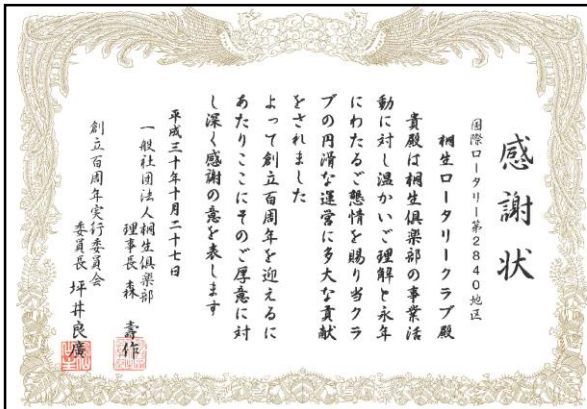 感謝状
国際ロータリー第2840地区
桐生ロータリークラブ殿
貴殿は桐生倶楽部の事業活
動に対し温かいご理解と永年
にわたるご懇情を賜り当クラ
ブの円滑な運営に多大な貢献
をされました
よって創立百周年を迎えるに
あたりここにそのご厚意に対
し深く感謝の意を表します
平成三十年十月二十七日
一般社団法人桐生倶楽部
理事長 森 壽作
創立百周年実行委員会
委員長 坪井良廣